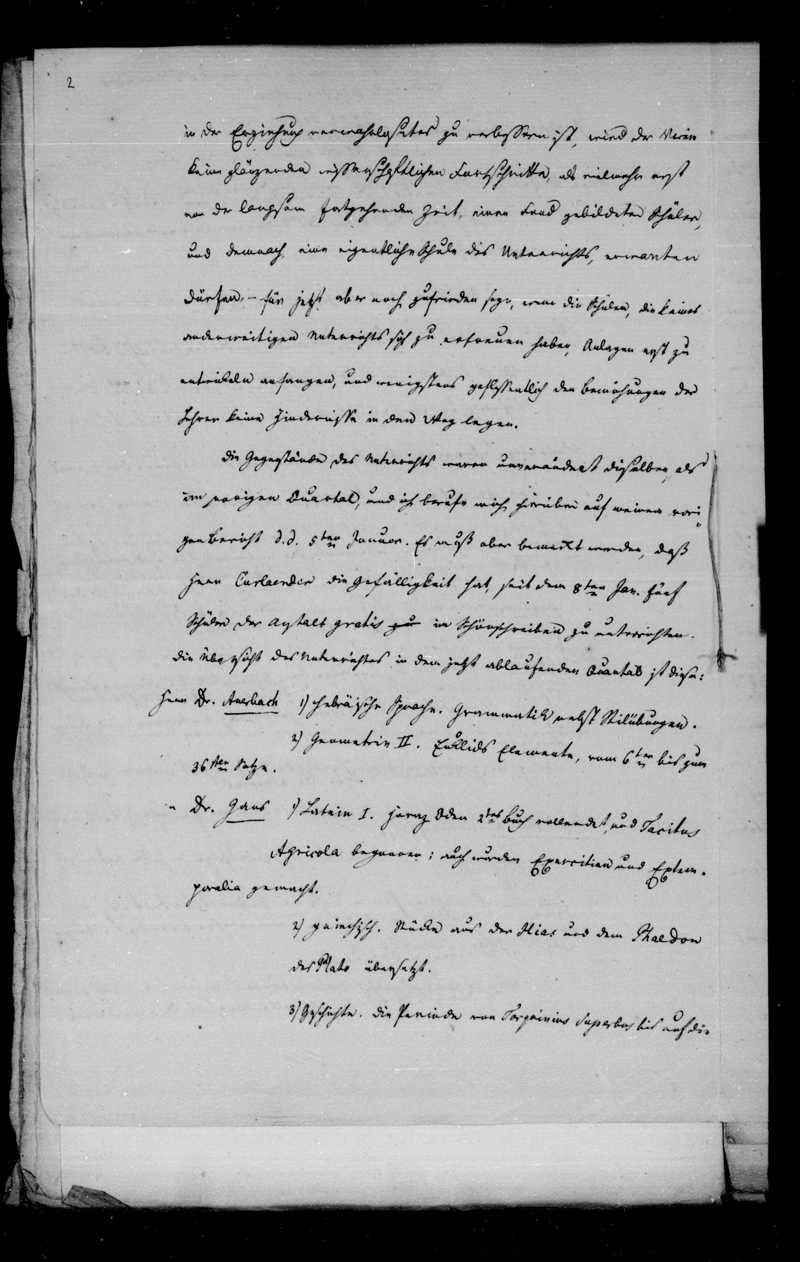 2
in der Erziehung verwahrlostes zu verbessern ist, wird der Verein
keine glänzenden wissenschaftlichen Fortschritte, als vielmehr erst
von der langsam fortgehenden Zeit, einen Fond gebildeter Schüler,
und demnach eine eigentliche Schule des Unterrichts, erwarten
dürfen, – für jetzt aber noch zufrieden seyn, wenn die Schüler, die keines
anderweitigen Unterrichts sich zu erfreuen haben, Anlagen erst zu
entwickeln anfangen, und wenigstens geflissentlich den Bemühungen der
Lehrer keine Hindernisse in den Weg legen.
Die Gegenstände des Unterrichts waren unverändert dieselben, als
im vorigen Quartal, und ich berufe mich hierüber auf meinen vori-
gen Bericht d. d. 5ten Januar. Es muß aber bemerkt werden, daß
Herr Curlaender die Gefälligkeit hat, seit dem 8ten Jan. fünf
Schüler der Anstalt gratis zu im Schönschreiben zu unterrichten.
Die Übersicht des Unterrichtes in dem jetzt ablaufenden Quartal ist diese:
Herr Dr. Auerbach 1) Hebräische Sprache. Grammatik nebst Stilübungen.
2) Geometrie II. Euklids Elemente, vom 6ten bis zum
36sten Satze.
" Dr. Gans 1) Latein I. Horaz Oden 2tes Buch vollendet, und Tacitus
Agricola begonnen; auch wurden Exercitien und Extem-
poralia gemacht.
2) Griechisch. Stücke aus der Ilias und dem Phaedon
des Plato übersetzt.
3) Geschichte. Die Periode von Tarquinius Superbus bis auf die